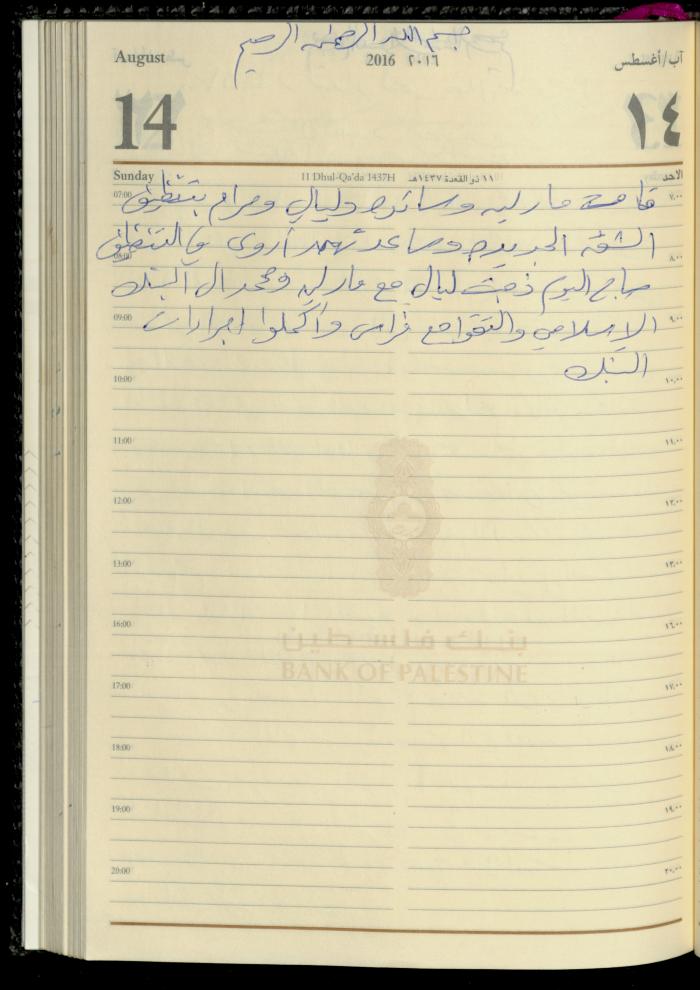 بسم الله الرحمن الرحيم
August 2016 ٢٠١٦ آب/أغسطس
14 ١٤
Sunday 11 Dhul-Qa'da 1437H ١١ ذو القعدة ١٤٣٧هـ الاحد
07:00 ٧,٠٠
قامت مارلين وسائده وليالي ومرام بتنظيف
الشقه الجديده وساعدتهم اروى في التنظيف
08:00 ٨,٠٠
صباح اليوم ذهبت ليالي مع مارلين ومحمد ال البنك
09:00 ٩,٠٠
الاسلامي والتقوا مع فراس واكملوا اجراءات
البنك
10:00 ١٠,٠٠
11:00 ١١,٠٠
12:00 ١٢,٠٠
13:00 ١٣,٠٠
16:00 ١٦,٠٠
بنك فلسطين
BANK OF PALESTINE
17:00 ١٧,٠٠
18:00 ١٨,٠٠
19:00 ١٩,٠٠
20:00 ٢٠,٠٠